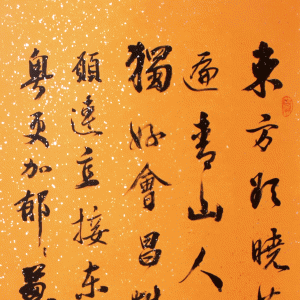 東方欲曉莫
遍青山人
獨好會昌城
顛連直接东
粤更加郁々葱